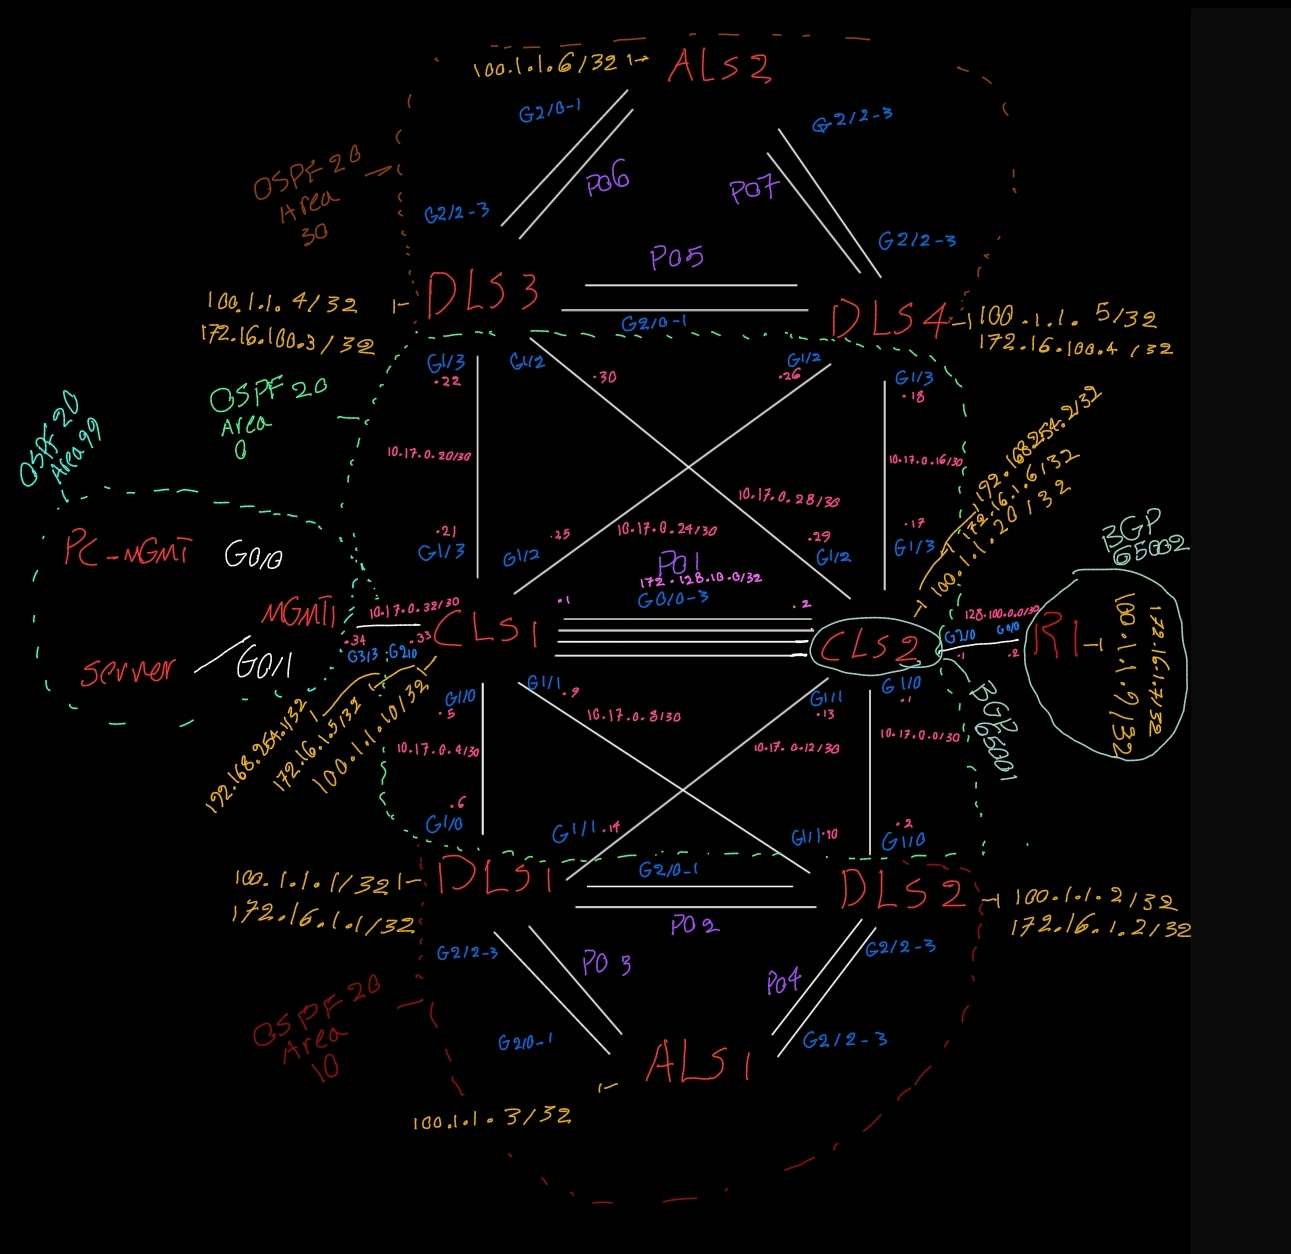 100.1.1.6/32
ALS2
G2/0-1
G2/2-3
OSPF 20
Area
30
PO6
PO7
G2/2-3
G2/2-3
PO5
100.1.1.4/32
172.16.100.3/32
DLS3
G2/0-1
DLS4
100.1.1.5/32
172.16.100.4/32
G1/3
.22
G1/2
.30
G1/2
.26
G1/3
.18
OSPF 20
Area
0
OSPF 20
Area 99
10.17.0.20/30
10.17.0.16/30
192.168.254.2/32
172.16.1.6/32
100.1.1.20/32
10.17.0.28/30
10.17.0.24/30
.21
G1/3
.25
G1/2
.29
G1/2
.17
G1/3
PO1
172.128.10.0/32
G0/0-3
.1
.2
BGP
65002
PC-MGMT
G0/0
MGMT1
10.17.0.32/30
.34
.33
G3/3
G2/0
CLS1
CLS2
128.100.0.0/30
G2/0
G0/0
.1
.2
R1
100.1.1.9/32
172.16.1.7/32
Server
G0/1
192.168.254.1/32
172.16.1.5/32
100.1.1.10/32
G1/0
.5
G1/1
.9
G1/1
.13
G1/0
.1
BGP
65001
10.17.0.8/30
10.17.0.4/30
10.17.0.12/30
10.17.0.0/30
.6
G1/0
G1/1
.14
G1/1
.10
.2
G1/0
100.1.1.1/32
172.16.1.1/32
DLS1
G2/0-1
PO2
DLS2
100.1.1.2/32
172.16.1.2/32
G2/2-3
PO3
PO4
G2/2-3
OSPF 20
Area
10
G2/0-1
ALS1
G2/2-3
100.1.1.3/32